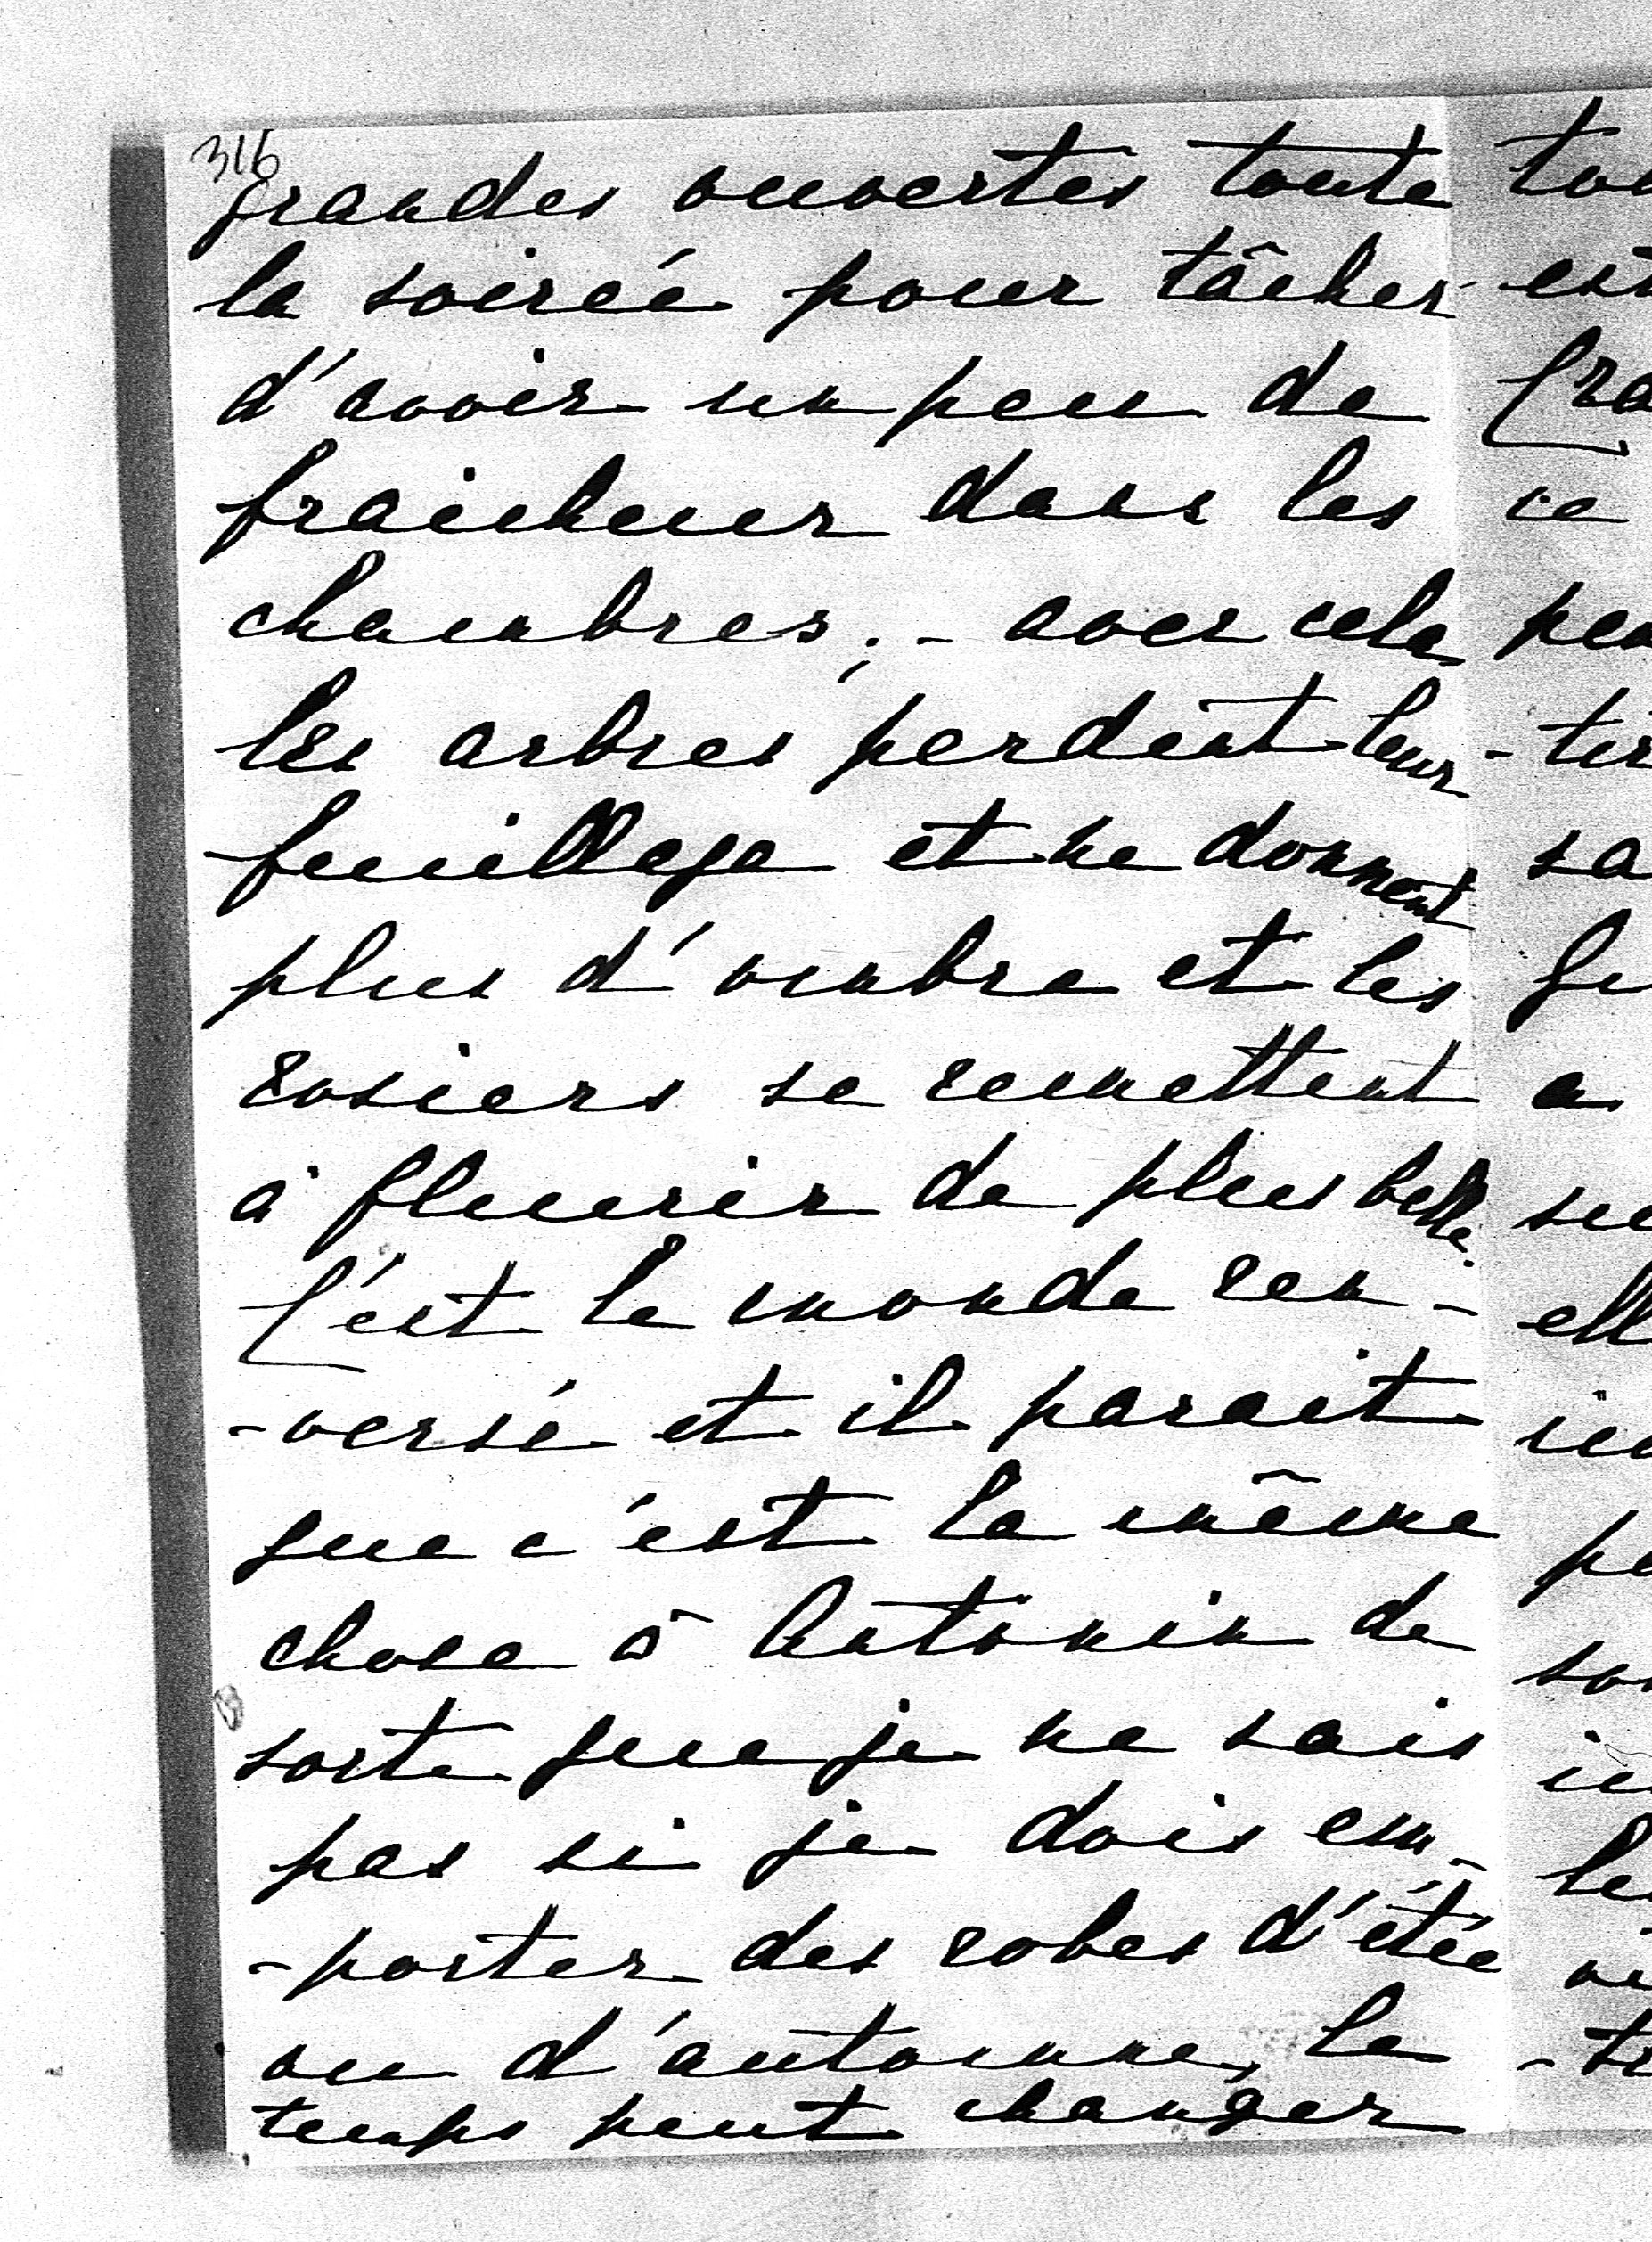 316
grandes ouvertes toute
la soirée pour tâcher
d'avoir un peu de
fraicheur dans les
chambres; - avec cela
les arbres perdent leur
feuillage et ne donnent
plus d'ombre et les
rosiers se remettent
à fleurir de plus belle.
C'est le monde ren-
-versé et il parait
que c'est la même
chose à Antonin de
sorte que je ne sais
pas si je dois em-
-porter des robes d'étée
ou d'automne, le
temps peut changer